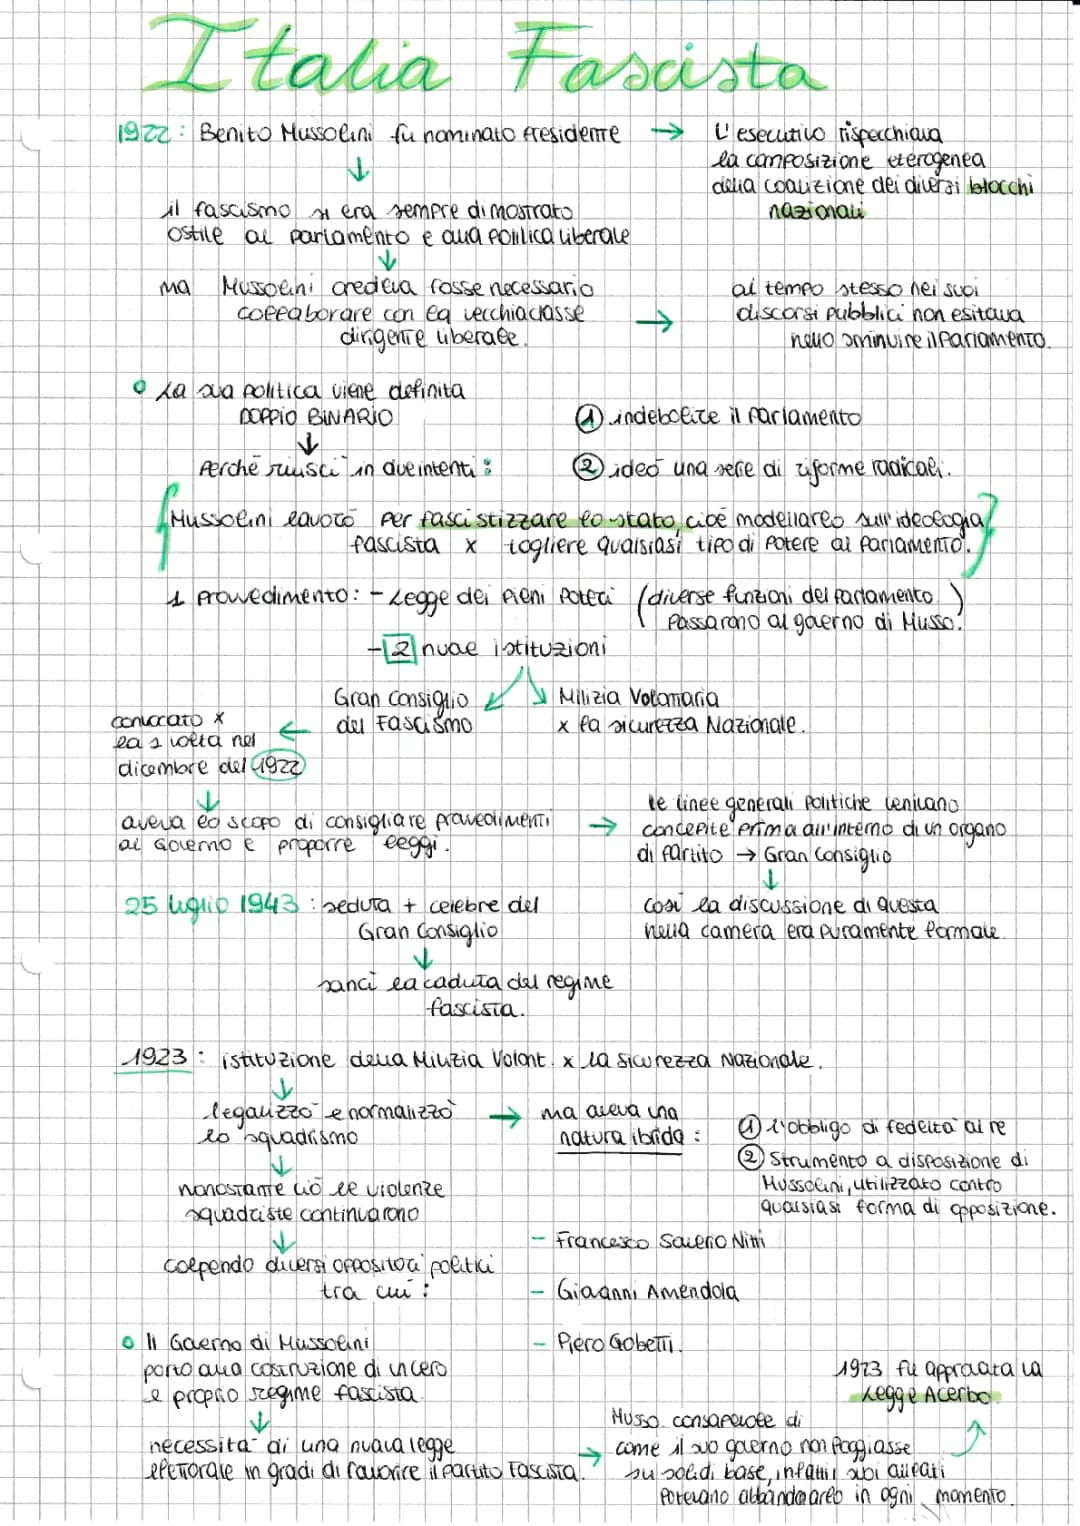 Italia Fascista
1922: Benito Mussolini fu nominato Presidente → L'esecutivo rispecchiava
la composizione eterogenea
della coalizione dei diversi blocchi
nazionali
il fascismo si era sempre dimostrato
ostile al parlamento e alla politica liberale
ma Mussolini credeva fosse necessario
collaborare con la vecchia classe
dirigente liberale.
→ al tempo stesso nei suoi
discorsi pubblici non esitava
nello sminuire il Parlamento.
La sua politica viene definita
DOPPIO BINARIO
Perché riuscì in due intenti:
① indebolire il Parlamento
② ideò una serie di riforme radicali.
Mussolini lavorò per fascistizzare lo stato, cioè modellarlo sull'ideologia
fascista x togliere qualsiasi tipo di potere al Parlamento.
1 Provvedimento: - Legge dei Pieni Poteri (diverse funzioni del Parlamento
passarono al governo di Musso.)
- 2 nuove istituzioni
Gran Consiglio
del Fascismo
Milizia Volontaria
x la sicurezza Nazionale.
convocato x
la 1 volta nel
dicembre del 1922
aveva lo scopo di consigliare provvedimenti
al Governo e proporre leggi.
→ le linee generali politiche venivano
concepite prima all'interno di un organo
di partito → Gran Consiglio
così la discussione di questa
nella camera era puramente formale.
25 luglio 1943: seduta + celebre del
Gran Consiglio
sancì la caduta del regime
fascista.
1923: istituzione della Milizia Volont. x la sicurezza Nazionale.
legalizzò e normalizzò
lo squadrismo
→ ma aveva una
natura ibrida:
① l'obbligo di fedeltà al re
② Strumento a disposizione di
Mussolini, utilizzato contro
qualsiasi forma di opposizione.
nonostante ciò le violenze
squadriste continuarono
colpendo diversi oppositori politici
tra cui:
- Francesco Saverio Nitti
- Giovanni Amendola
- Piero Gobetti.
Il Governo di Mussolini
portò alla costruzione di un vero
e proprio regime fascista.
necessità di una nuova legge
elettorale in gradi di favorire il partito Fascista.
→ Musso. consapevole di
come il suo governo non poggiasse
su solidi base, infatti i suoi alleati
potevano abbandonarlo in ogni momento.
1923 fu approvata la
Legge Acerbo.